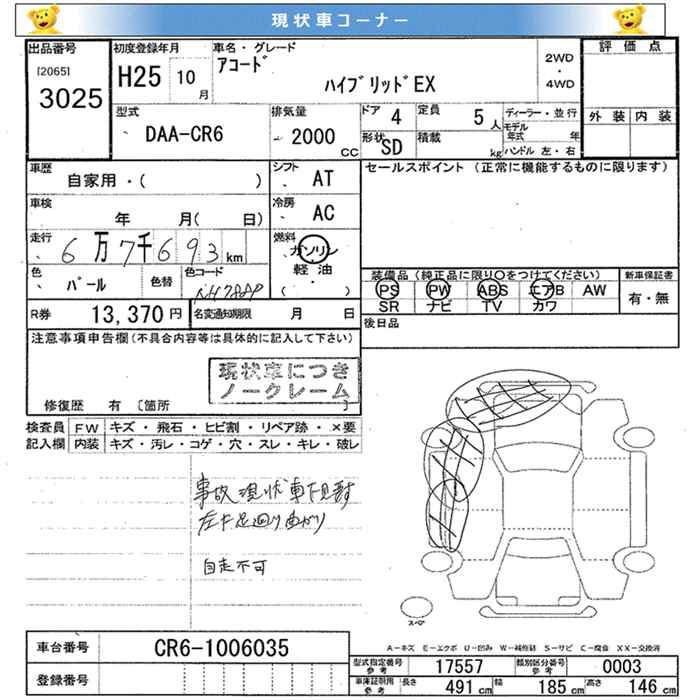 現状車コーナー
出品番号
[2065]
3025
初度登録年月
H25 10月
車名・グレード
アコード
ハイブリッドEX
2WD
・
4WD
評価点
外装 内装
型式
DAA-CR6
排気量
2000
CC
ドア 4
定員 5人
形状 SD
積載 kg
ディーラー・並行
モデル年式 年
ハンドル 左・右
車歴
自家用・( )
シフト AT
セールスポイント (正常に機能するものに限ります)
車検
年 月( 日)
冷房 AC
走行
6万7千693km
燃料
ガソリン
軽油
・( )
色
パール
色替
色コード
装備品(純正品に限り○をつけてください)
PS PW ABS エアB AW
SR ナビ TV カワ
新車保証書
有・無
R券 13,370円
名変通知期限 月 日
後日品
注意事項申告欄(不具合内容等は具体的に記入して下さい)
現状車につき
ノークレーム
修復歴 有 [箇所 ]
検査員記入欄
FW キズ・飛石・ヒビ割・リペア跡・×要
内装 キズ・汚レ・コゲ・穴・スレ・キレ・破レ
事故現状車下見要
左F足廻り曲がり
自走不可
スペア
A-キズ E-エクボ U-凹み W-補修跡 S-サビ C-腐食 XX-交換済
車台番号 CR6-1006035
登録番号
型式指定番号 参考 17557
類別区分番号 参考 0003
車庫証明用 参考 長さ 491cm 幅 185cm 高さ 146cm